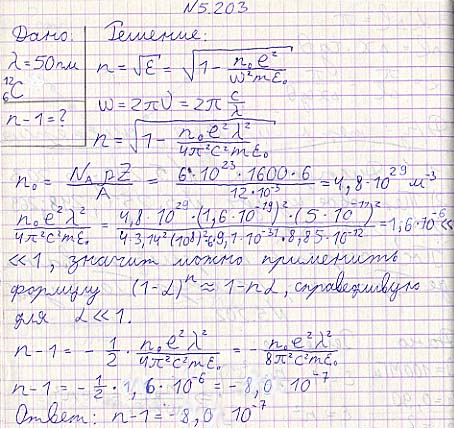 N5.203
Дано: Решение:
λ=50пм
¹²₆C
n-1=?
n=√Ɛ = √(1 - n₀e²/ω²mƐ₀)
ω=2πν=2π c/λ
n=√(1 - n₀e²λ²/4π²c²mƐ₀)
n₀ = N_A ρZ/A = 6·10²³·1600·6/12·10⁻³ = 4,8·10²⁹ м⁻³
n₀e²λ²/4π²c²mƐ₀ = 4,8·10²⁹·(1,6·10⁻¹⁹)²·(5·10⁻¹¹)²/4·3,14²(10⁸)²·9,1·10⁻³¹·8,85·10⁻¹² = 1,6·10⁻⁶ ≪
≪1, значит можно применить
формулу (1-α)ⁿ ≈ 1-nα, справедливую
для α≪1.
n-1 = - 1/2 · n₀e²λ²/4π²c²mƐ₀ = - n₀e²λ²/8π²c²mƐ₀
n-1 = - 1/2 · 1,6·10⁻⁶ = -8,0·10⁻⁷
Ответ: n-1 = -8,0 10⁻⁷